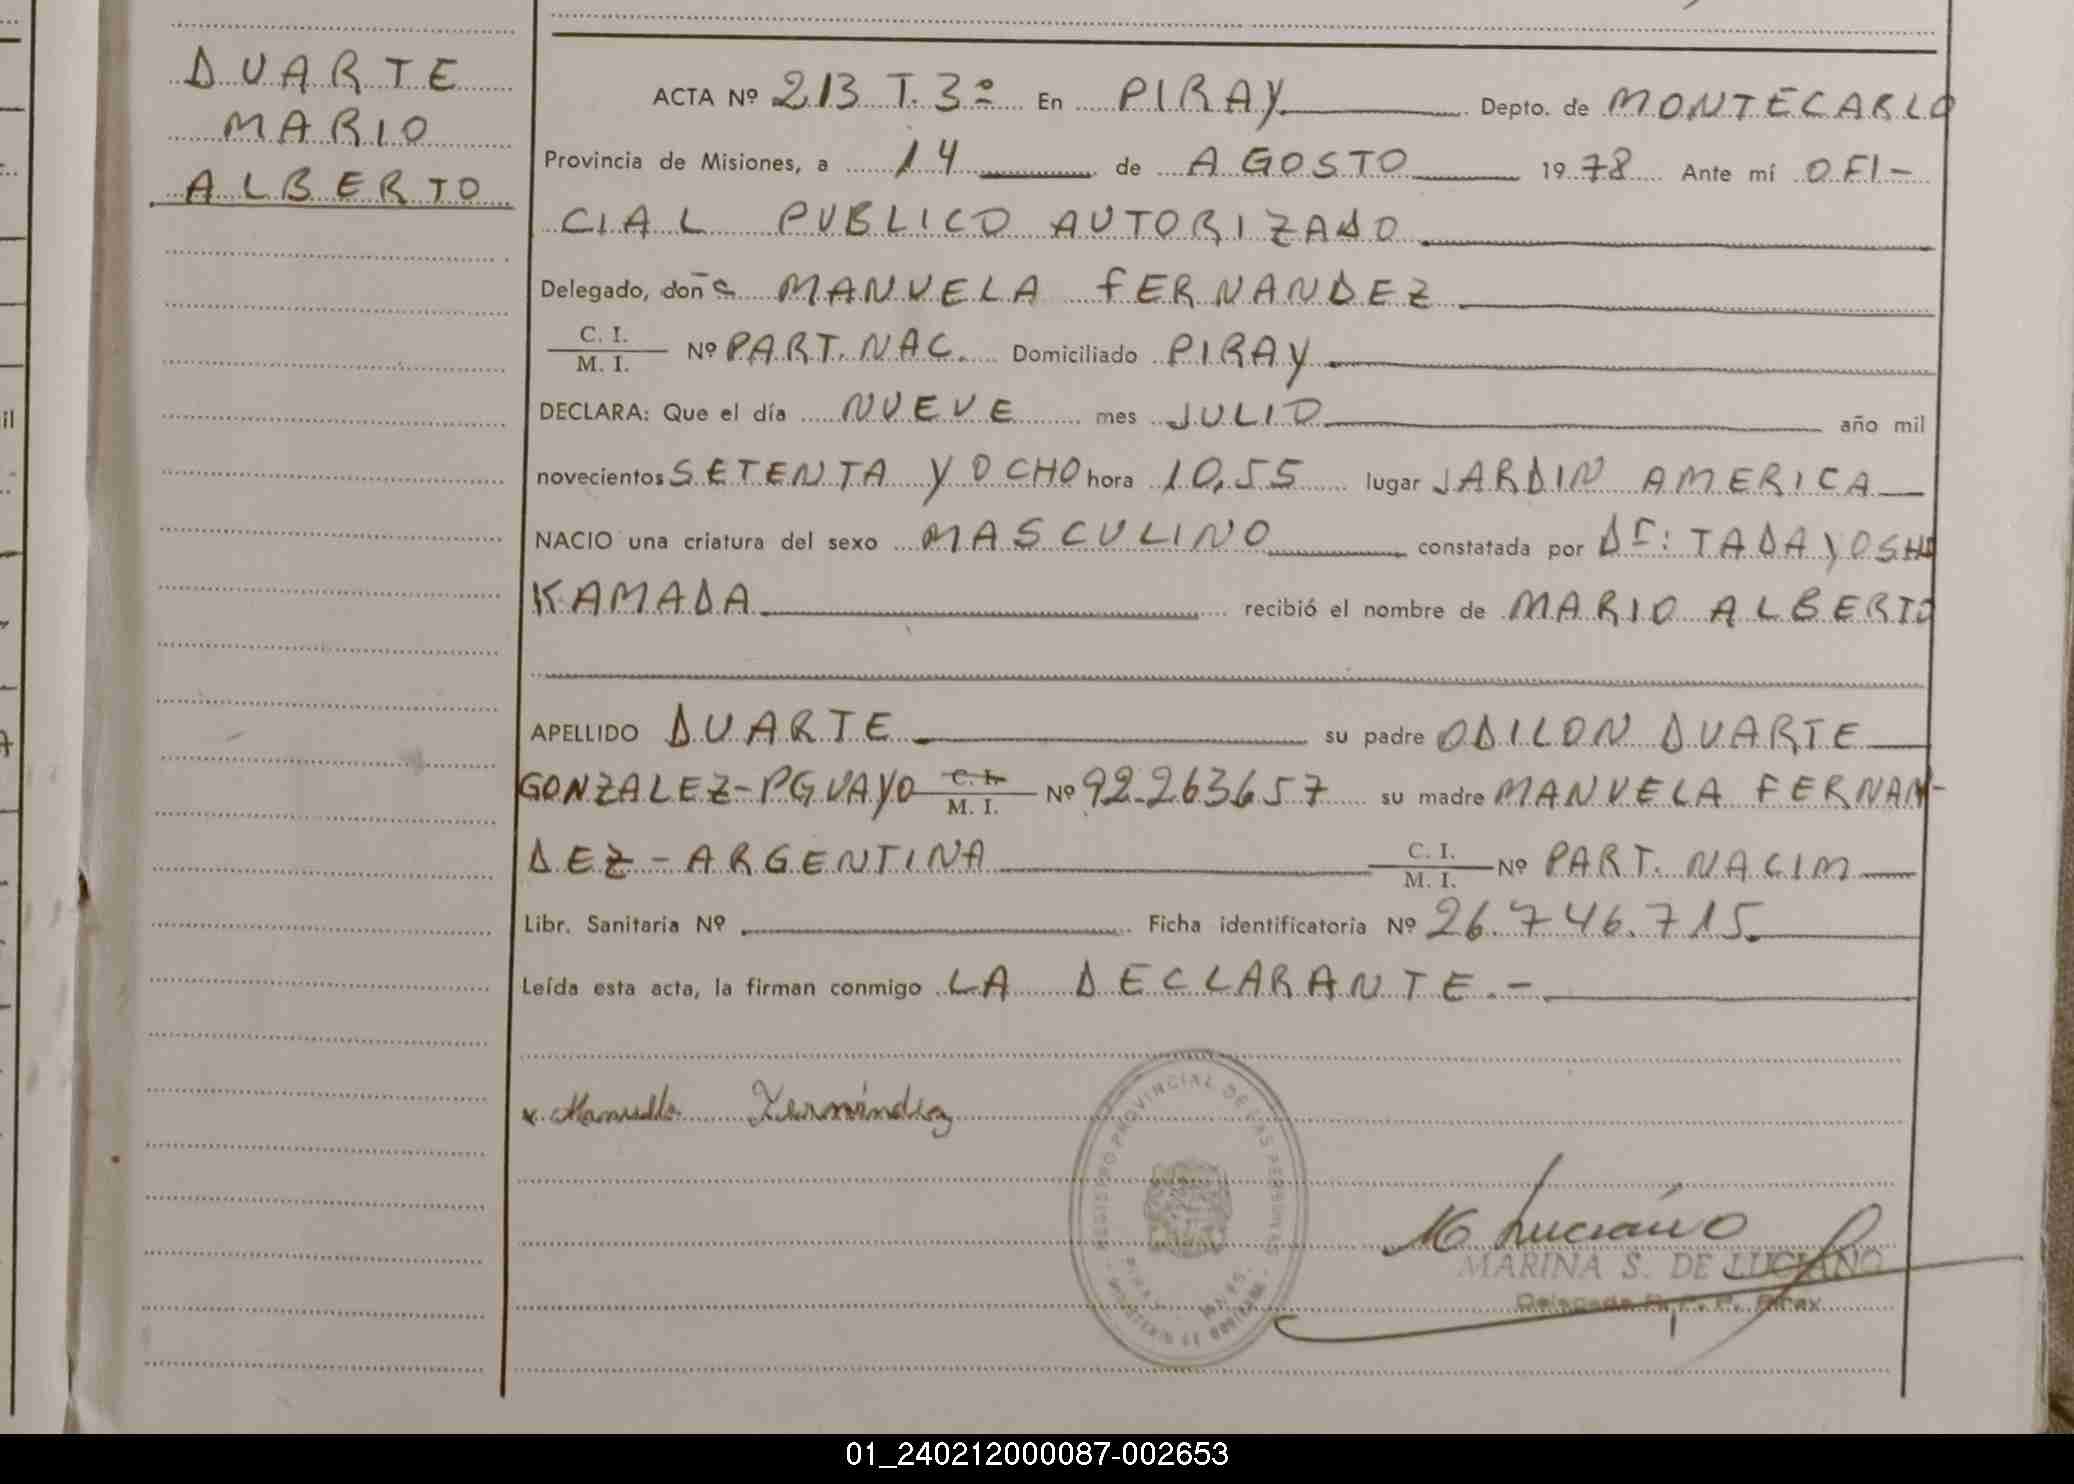 DUARTE
MARIO
ALBERTO
ACTA Nº 213 T. 3º En PIRAY Depto. de MONTECARLO
Provincia de Misiones, a 14 de AGOSTO 1978 Ante mí OFI-
CIAL PUBLICO AUTORIZADO
Delegado, doña MANUELA FERNANDEZ
C. I.
M. I. Nº PART. NAC. Domiciliado PIRAY
DECLARA: Que el día NUEVE mes JULIO año mil
novecientos SETENTA Y OCHO hora 10,55 lugar JARDIN AMERICA
NACIO una criatura del sexo MASCULINO constatada por Dr: TADAYOSHI
KAMADA recibió el nombre de MARIO ALBERTO
APELLIDO DUARTE su padre ODILON DUARTE
GONZALEZ-PGUAYO C. I. M. I. Nº 92.263657 su madre MANUELA FERNAN-
DEZ-ARGENTINA C. I. M. I. Nº PART. NACIM
Libr. Sanitaria Nº Ficha identificatoria Nº 26.746.715.
Leída esta acta, la firman conmigo LA DECLARANTE.-
x. Manuela Fernández
REGISTRO PROVINCIAL DE LAS PERSONAS
MINISTERIO DE GOBIERNO
M Luciano
MARINA S. DE LUCIANO
Delegada R. P. P. Piray
01_240212000087-002653